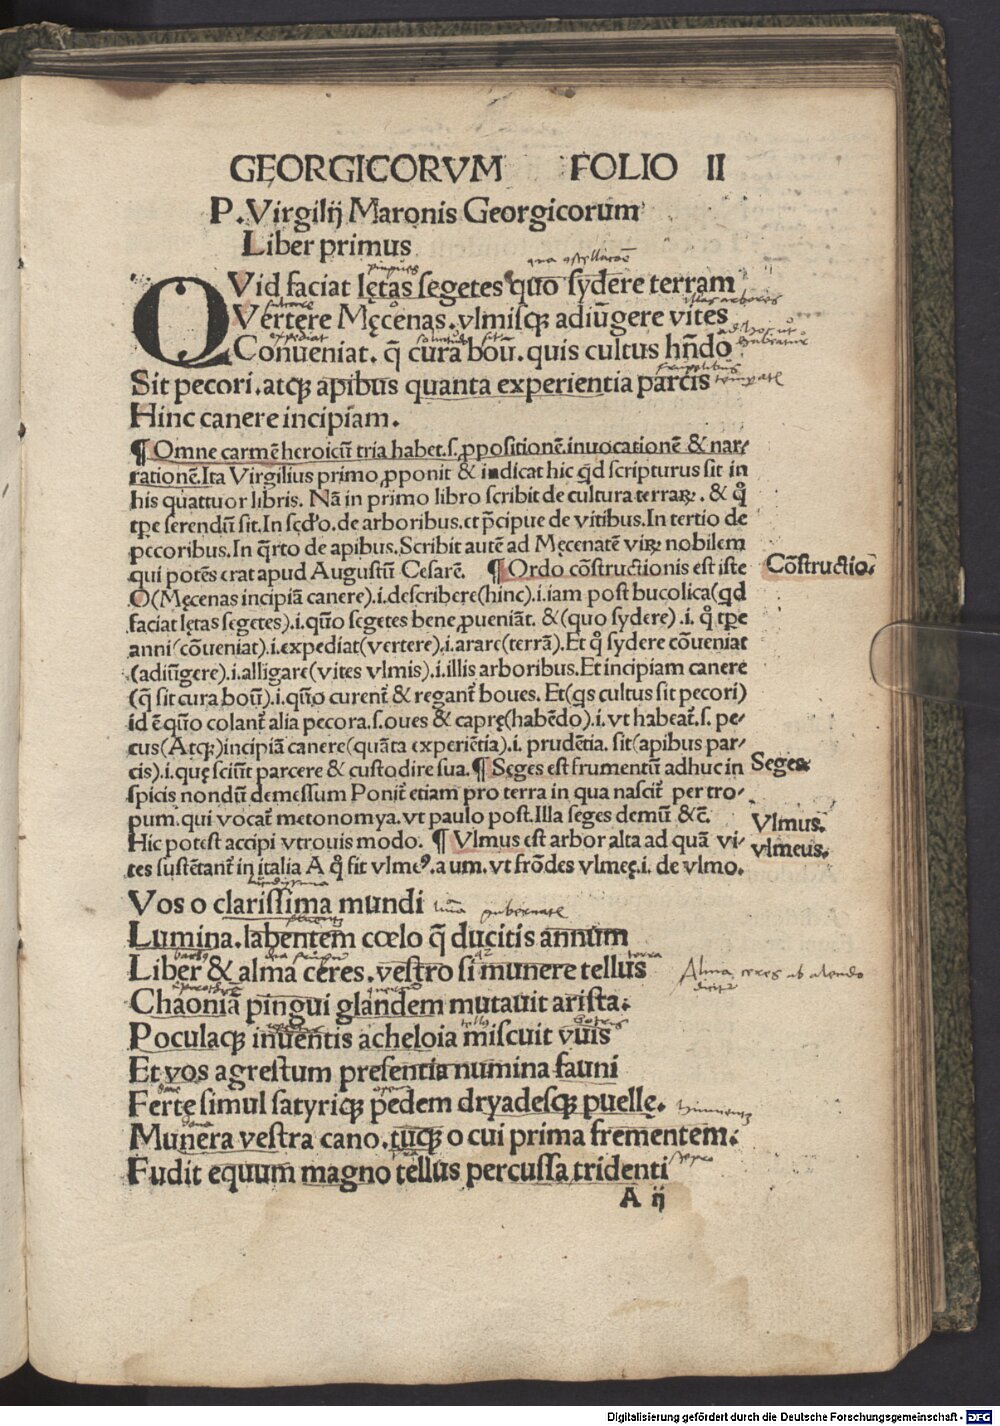 GEORGICORVM FOLIO II
P. Virgilij Maronis Georgicorum
Liber primus
QVid faciat lętas segetes quo sydere terram
Vertere Męcenas. vlmisqꝫ adiūgere vites
Conueniat. q̄ cura boū. quis cultus hn̄do
Sit pecori. atqꝫ apibus quanta experientia parcis
Hinc canere incipiam.
¶ Omne carmē heroicū tria habet. s. ꝓpositionē. inuocationē & nar-
rationē. Ita Virgilius primo ꝓponit & indicat hic qd̄ scripturus sit in
his quattuor libris. Nā in primo libro scribit de cultura terraꝝ. & q̊
tꝑe serendū sit. In scd̓o. de arboribus. et p̄cipue de vitibus. In tertio de
pecoribus. In q̄rto de apibus. Scribit autē ad Męcenatē viꝝ nobilem
qui potēs erat apud Augustū Cesarē. ¶ Ordo cōstructionis est iste
Cōstructio.
O (Męcenas incipiā canere) .i. describere (hinc) .i. iam post bucolica (qd̄
faciat lętas segetes) .i. quō segetes bene ꝓueniāt. & (quo sydere) .i. q̊ tꝑe
anni (cōueniat) .i. expediat (vertere) .i. arare (terrā). Et q̊ sydere cōueniat
(adiūgere) .i. alligare (vites vlmis) .i. illis arboribus. Et incipiam canere
(q̄ sit cura boū) .i. quō curent᷑ & regant᷑ boues. Et (qs cultus sit pecori)
id ē quō colant᷑ alia pecora. s. oues & caprę (habēdo) .i. vt habeat᷑. s. pe-
cus (Atqꝫ) incipiā canere (quāta experiētia) .i. prudētia. sit (apibus par-
cis) .i. quę sciūt parcere & custodire sua. ¶ Seges est frumentū adhuc in
Seges.
spicis nondū demessum Ponit᷑ etiam pro terra in qua nascit᷑ per tro-
pum. qui vocat᷑ metonomya. vt paulo post. Illa seges demū &c̄.
Vlmus.
Hic potest accipi vtrouis modo. ¶ Vlmus est arbor alta ad quā vi-
vlmeus.
tes sustētant᷑ in italia A q̊ fit vlmeꝰ. a um. vt frōdes vlmeę. i. de vlmo.
Vos o clarissima mundi
Lumina. labentem cœlo q̄ ducitis annum
Liber & alma ceres. vestro si munere tellus
Alma ceres ab alendo
dicitur
Chaoniā pingui glandem mutauit arista.
Poculaqꝫ inuentis acheloia miscuit vuis
Et vos agrestum presentia numina fauni
Ferte simul satyriqꝫ pedem dryadesqꝫ puellę.
Munera vestra cano. tuqꝫ o cui prima frementem.
Fudit equum magno tellus percussa tridenti
A ij
Digitalisierung gefördert durch die Deutsche Forschungsgemeinschaft - DFG